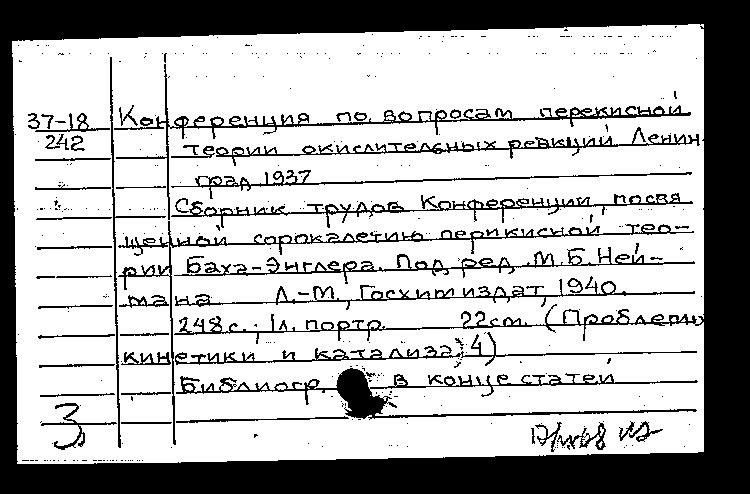 37-18 Конференция по вопросам перекисной
242 теории окислительных реакций Ленин
град 1937
Сборник трудов Конференции, посвя
щенной сорокалетию перикисной тео-
рии Баха-Энглера. Под ред. М.Б. Ней-
мана Л.-М., Госхимиздат, 1940.
248с.; 1л. портр. 22см. (Проблемы
кинетики и катализа; 4)
Библиогр. в конце статей
3